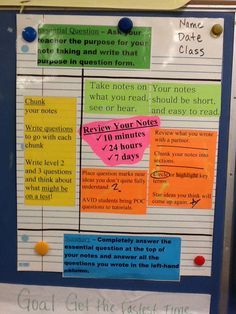 Essential Question – Ask your
teacher the purpose for your
note taking and write that
purpose in question form.
Name
Date
Class
Take notes on
what you read,
see or hear.
Your notes
should be short,
and easy to read.
Chunk
your notes
Write questions
to go with each
chunk
Write level 2
and 3 questions
and think about
what might be
on a test!
Review Your Notes
✓ 10 minutes
✓ 24 hours
✓ 7 days
Review what you wrote
with a partner.
Chunk your notes into
sections.
Circle or highlight key
terms.
Star ideas you think will
come up again.
Place question marks near
ideas you don't quite fully
understand. ?
AVID students bring POC
questions to tutorials.
Summary – Completely answer the
essential question at the top of
your notes and answer all the
questions you wrote in the left-hand
column.
Goal Get the fastest time